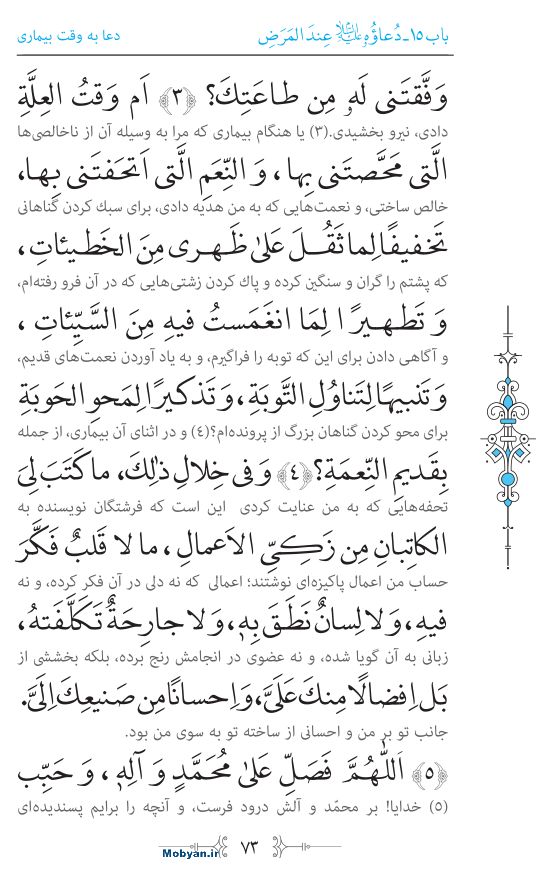 باب ۱۵ـ دُعاؤُهُ علیه‌السلام عِندَ المَرَضِ
دعا به وقت بیماری
وَفَّقتَنی لَهُۥ مِن طاعَتِكَ؟ ﴿۳﴾ اَم وَقتُ العِلَّةِ
دادی، نیرو بخشیدی.(۳) یا هنگام بیماری که مرا به وسیله آن از ناخالصی‌ها
الَّتی مَحَّصتَنی بِها، وَ النِّعَمِ الَّتی اَتحَفتَنی بِها،
خالص ساختی، و نعمت‌هایی که به من هدیه دادی، برای سبك کردن گناهانی
تَخفیفًا لِما ثَقُلَ عَلیٰ ظَهری مِنَ الخَطیئاتِ،
که پشتم را گران و سنگین کرده و پاك کردن زشتی‌هایی که در آن فرو رفته‌ام،
وَ تَطهیرًا لِمَا انغَمَستُ فیهِ مِنَ السَّیِّئاتِ،
و آگاهی دادن برای این که توبه را فراگیرم، و به یاد آوردن نعمت‌های قدیم،
وَ تَنبیهًا لِتَناوُلِ التَّوبَةِ، وَ تَذکیرًا لِمَحوِ الحَوبَةِ
برای محو کردن گناهان بزرگ از پرونده‌ام؟(۴) و در اثنای آن بیماری، از جمله
بِقَدیمِ النِّعمَةِ؟ ﴿۴﴾ وَ فی خِلالِ ذٰلِكَ، ما کَتَبَ لِیَ
تحفه‌هایی که به من عنایت کردی این است که فرشتگان نویسنده به
الکاتِبانِ مِن زَکِیِّ الاَعمالِ، ما لا قَلبٌ فَکَّرَ
حساب من اعمال پاکیزه‌ای نوشتند؛ اعمالی که نه دلی در آن فکر کرده، و نه
فیهِ، وَ لا لِسانٌ نَطَقَ بِهٖ، وَ لا جارِحَةٌ تَکَلَّفَتهُ،
زبانی به آن گویا شده، و نه عضوی در انجامش رنج برده، بلکه بخششی از
بَل اِفضالًا مِنكَ عَلَیَّ، وَ اِحسانًا مِن صَنیعِكَ اِلَیَّ.
جانب تو بر من و احسانی از ساخته تو به سوی من بود.
﴿۵﴾ اَللّٰهُمَّ فَصَلِّ عَلیٰ مُحَمَّدٍ وَ آلِهٖ، وَ حَبِّب
(۵) خدایا! بر محمّد و آلش درود فرست، و آنچه را برایم پسندیده‌ای
۷۳
Mobyan.ir